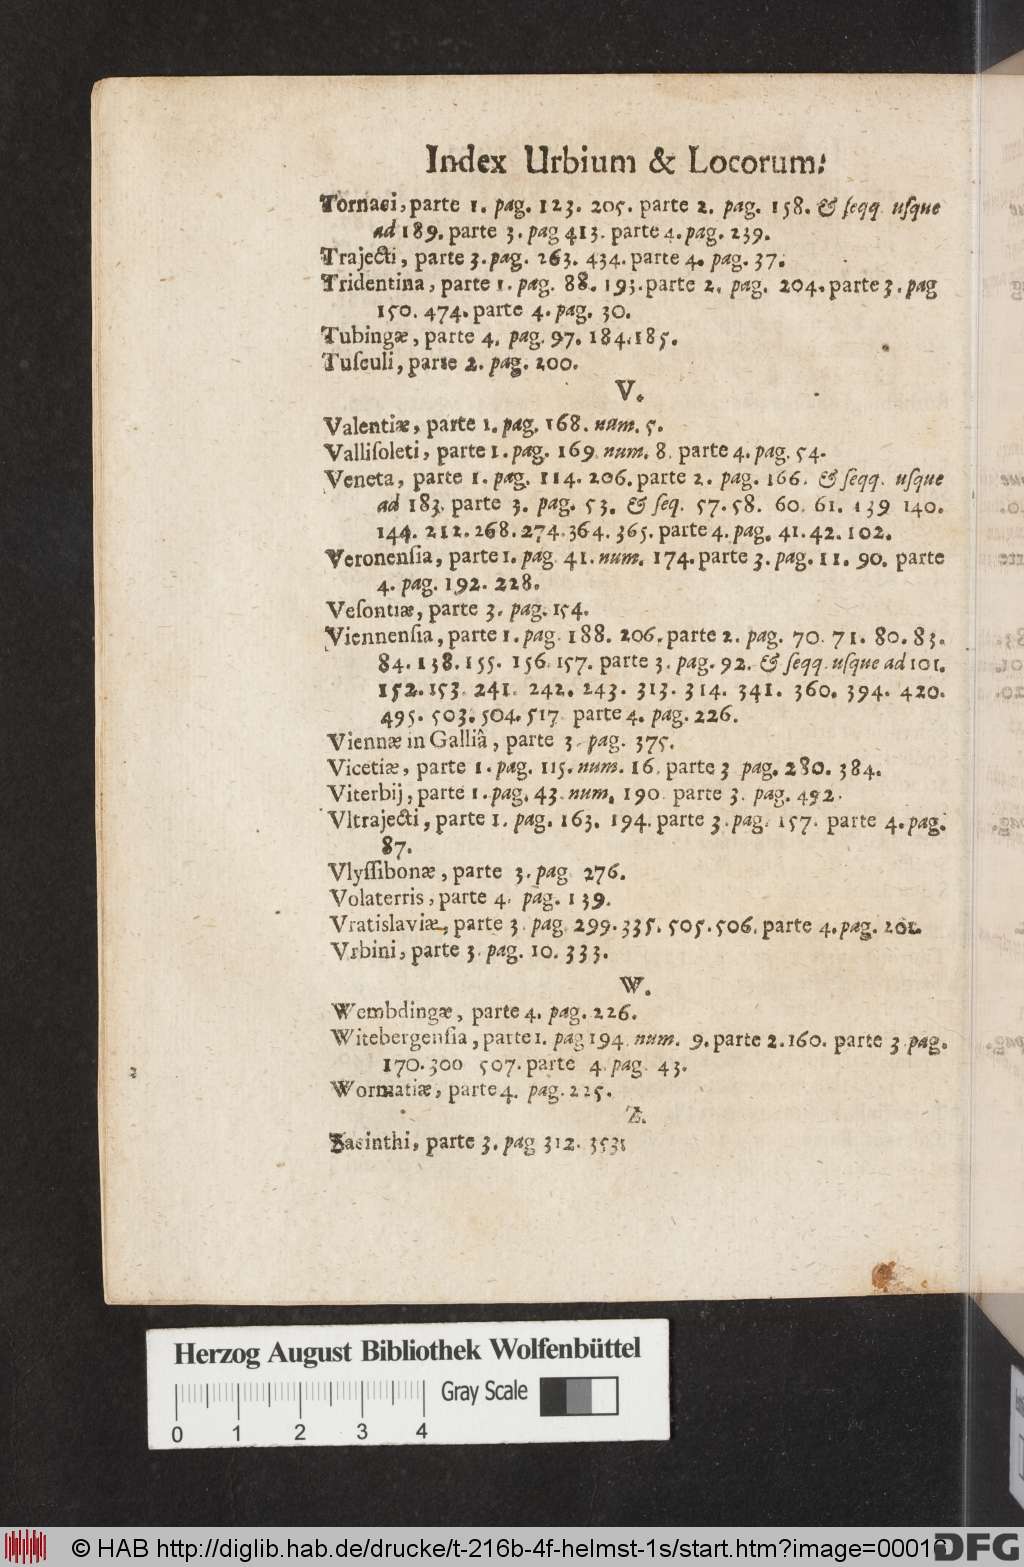 Index Urbium & Locorum.
Tornaci, parte 1. pag. 123. 205. parte 2. pag. 158. & ſeqq. uſque
ad 189. parte 3. pag 413. parte 4. pag. 239.
Trajecti, parte 3. pag. 263. 434. parte 4. pag. 37.
Tridentina, parte 1. pag. 88. 193. parte 2. pag. 204. parte 3. pag
150. 474. parte 4. pag. 30.
Tubingæ, parte 4. pag. 97. 184. 185.
Tuſculi, parte 2. pag. 200.
V.
Valentiæ, parte 1. pag. 168. num. 5.
Valliſoleti, parte 1. pag. 169. num. 8. parte 4. pag. 54.
Veneta, parte 1. pag. 114. 206. parte 2. pag. 166. & ſeqq. uſque
ad 183. parte 3. pag. 53. & ſeq. 57. 58. 60. 61. 139 140.
144. 212. 268. 274. 364. 365. parte 4. pag. 41. 42. 102.
Veronenſia, parte 1. pag. 41. num. 174. parte 3. pag. 11. 90. parte
4. pag. 192. 228.
Veſontiæ, parte 3. pag. 154.
Viennenſia, parte 1. pag. 188. 206. parte 2. pag. 70. 71. 80. 83.
84. 138. 155. 156. 157. parte 3. pag. 92. & ſeqq. uſque ad 101.
152. 153. 241. 242. 243. 313. 314. 341. 360. 394. 420.
495. 503. 504. 517 parte 4. pag. 226.
Viennæ in Galliâ, parte 3. pag. 375.
Vicetiæ, parte 1. pag. 115. num. 16. parte 3 pag. 280. 384.
Viterbij, parte 1. pag. 43. num. 190. parte 3. pag. 492.
Vltrajecti, parte 1. pag. 163. 194. parte 3. pag. 157. parte 4. pag.
87.
Vlyſſibonæ, parte 3. pag 276.
Volaterris, parte 4. pag. 139.
Vratislaviæ, parte 3. pag. 299. 335. 505. 506. parte 4. pag. 201.
Vrbini, parte 3. pag. 10. 333.
W.
Wembdingæ, parte 4. pag. 226.
Witebergenſia, parte 1. pag 194. num. 9. parte 2. 160. parte 3. pag.
170. 300 507. parte 4. pag. 43.
Wormatiæ, parte 4. pag. 225.
Z.
Zacinthi, parte 3. pag 312. 353.
Herzog August Bibliothek Wolfenbüttel
Gray Scale
0 1 2 3 4
© HAB http://diglib.hab.de/drucke/t-216b-4f-helmst-1s/start.htm?image=00016
DFG